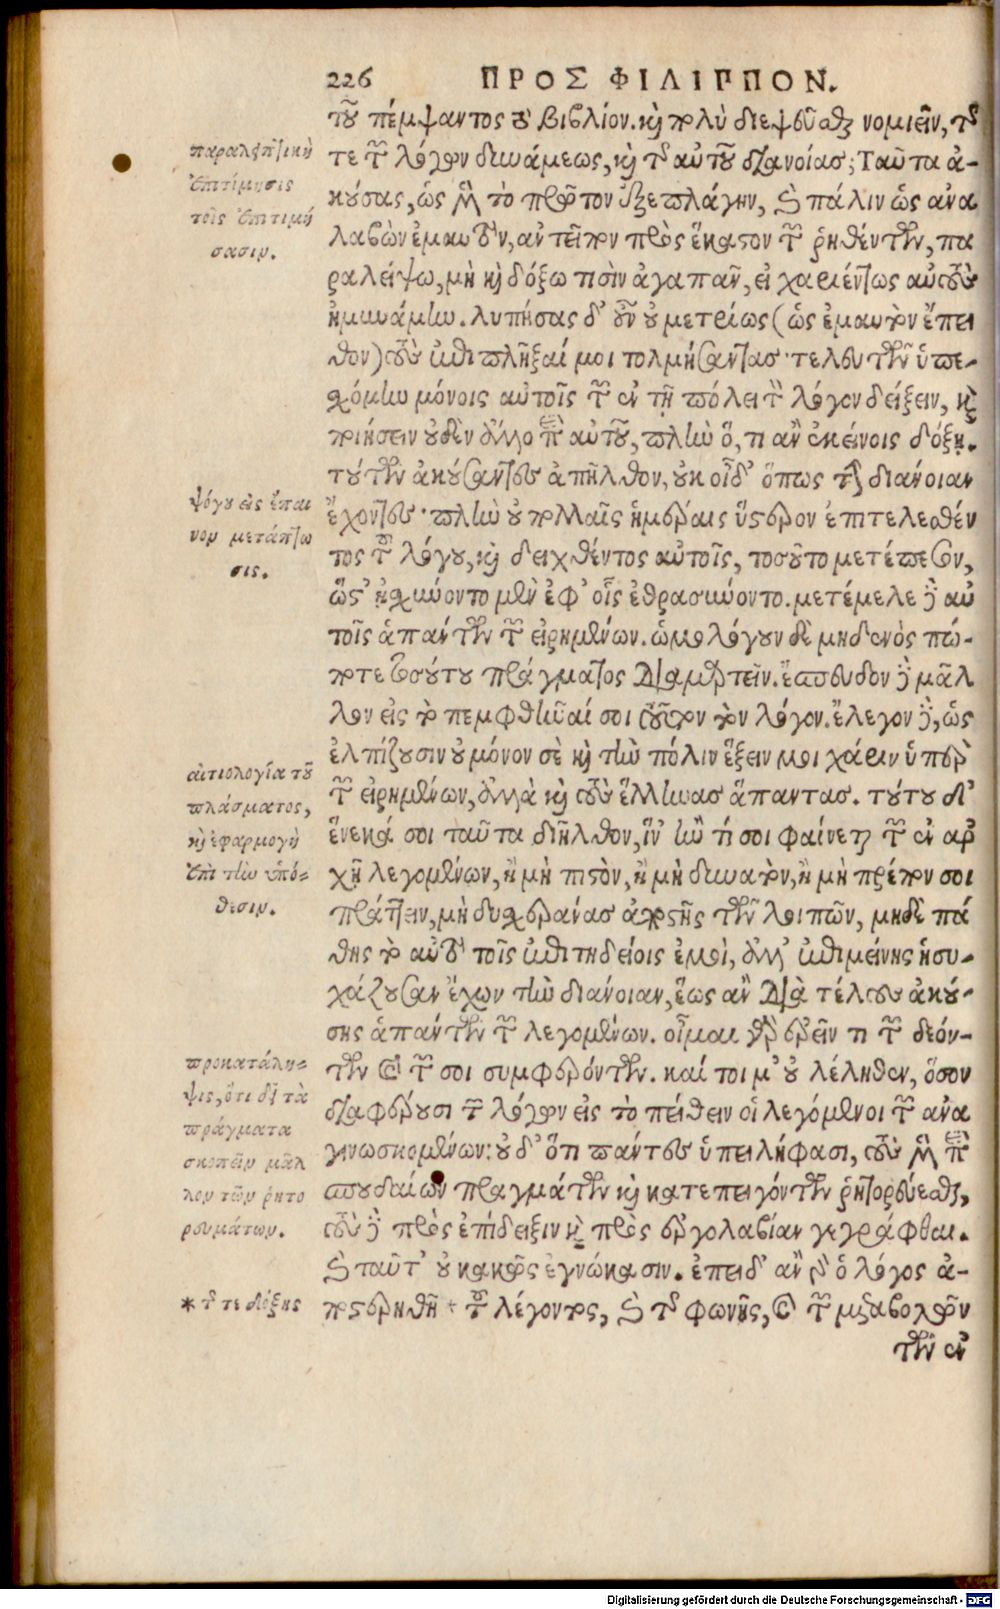 226 ΠΡΟΣ ΦΙΛΙΠΠΟΝ.
τοῦ πέμψαντος τὸ βιβλίον. καὶ πολὺ διεψεῦσθαι νομιεῖν, τῆς
τε τῶν λόγων δυνάμεως, καὶ τῆς αὐτοῦ διανοίας; Ταῦτα ἀ-
κούσας, ὡς μὲν τὸ πρῶτον ἐξεπλάγην, καὶ πάλιν ὡς ἀνα
λαβὼν ἐμαυτὸν, ἀντεῖπον πρὸς ἕκαστον τῶν ῥηθέντων, πα
ραλείψω, μὴ καὶ δόξω τισὶν ἀγαπᾶν, εἰ χαριέντως αὐτοὺς
ἠμυνάμην. λυπήσας δ' οὖν οὐ μετρίως (ὡς ἐμαυτὸν ἔπει
θον) τοὺς ἐπιπλῆξαί μοι τολμήσαντας· τελευτῶν ὑπε-
χόμην μόνοις αὐτοῖς τῶν ἐν τῇ πόλει τὸν λόγον δείξειν, καὶ
ποιήσειν οὐδὲν ἄλλο περὶ αὐτοῦ, πλὴν ὅ, τι ἂν ἐκείνοις δόξῃ.
τούτων ἀκούσαντες ἀπῆλθον, οὐκ οἶδ' ὅπως τὴν διάνοιαν
ἔχοντες· πλὴν οὐ πολλαῖς ἡμέραις ὕστερον ἐπιτελεσθέν
τος τοῦ λόγου, καὶ δειχθέντος αὐτοῖς, τοσοῦτο μετέπεσον,
ὥστ' ᾐσχύνοντο μὲν ἐφ' οἷς ἐθρασύνοντο. μετέμελε δὲ αὐ
τοῖς ἁπάντων τῶν εἰρημένων. ὡμολόγουν δὲ μηδενὸς πώ-
ποτε τοσούτου πράγματος διαμαρτεῖν. ἔσπευδον δὲ μᾶλ
λον εἰς τὸ πεμφθῆναί σοι τοῦτον τὸν λόγον. ἔλεγον δὲ, ὡς
ἐλπίζουσιν οὐ μόνον σὲ καὶ τὴν πόλιν ἕξειν μοι χάριν ὑπὲρ
τῶν εἰρημένων, ἀλλὰ καὶ τοὺς ἕλληνας ἅπαντας. τούτου δ'
ἕνεκά σοι ταῦτα διῆλθον, ἵν' ἤν τί σοι φαίνεται τῶν ἐν ἀρ
χῇ λεγομένων, ἢ μὴ πιστὸν, ἢ μὴ δυνατὸν, ἢ μὴ πρέπον σοι
πράττειν, μὴ δυσχεράνας ἀποστῇς τῶν λοιπῶν, μηδὲ πά
θῃς τὸ αὐτὸ τοῖς ἐπιτηδείοις ἐμοὶ, ἀλλ' ἐπιμείνῃς ἡσυ-
χάζουσαν ἔχων τὴν διάνοιαν, ἕως ἂν διὰ τέλους ἀκού-
σῃς ἁπάντων τῶν λεγομένων. οἶμαι γὰρ ἐρεῖν τι τῶν δεόν-
των καὶ τῶν σοι συμφερόντων. καί τοι μ' οὐ λέληθεν, ὅσον
διαφέρουσι τῶν λόγων εἰς τὸ πείθειν οἱ λεγόμενοι τῶν ἀνα
γινωσκομένων: οὐδ' ὅτι πάντες ὑπειλήφασι, τοὺς μὲν περὶ
σπουδαίων πραγμάτων καὶ κατεπειγόντων ῥητορεύεσθαι,
τοὺς δὲ πρὸς ἐπίδειξιν καὶ πρὸς ἐργολαβίαν γεγράφθαι.
καὶ ταῦτ' οὐ κακῶς ἐγνώκασιν. ἐπειδ' ἂν γὰρ ὁ λόγος ἀ-
ποστερηθῇ * τοῦ λέγοντος, καὶ τῆς φωνῆς, καὶ τῶν μεταβολῶν
τῶν ἐν
παραλειπτικὴ
ἐπιτίμησις
τοῖς ἐπιτιμή
σασιν.
ψόγου εἰς ἔπαι
νον μετάπτω
σις.
αἰτιολογία τοῦ
πλάσματος,
καὶ ἐφαρμογὴ
ἐπὶ τὴν ὑπό-
θεσιν.
προκατάλη-
ψις, ὅτι δεῖ τὰ
πράγματα
σκοπεῖν μᾶλ
λον τῶν ῥητο
ρευμάτων.
* τῆς τε δόξης
Digitalisierung gefördert durch die Deutsche Forschungsgemeinschaft - DFG